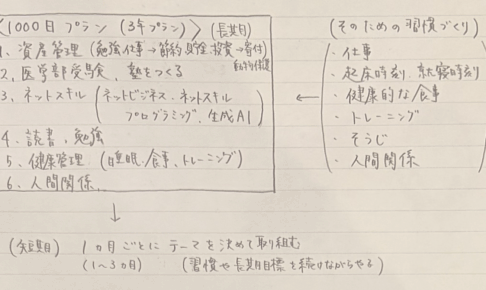 〈1000日プラン (3年プラン)〉 (長期目)
1、資産管理 (勉強仕事→節約、貯金、投資→寄付)
2、医学部受験、塾をつくる
3、ネットスキル (ネットビジネス、ネットスキル
プログラミング、生成AI)
4、読書、勉強
5、健康管理 (睡眠、食事、トレーニング)
6、人間関係
↓
(短期目) 1ヵ月ごとにテーマを決めて取り組む
(1〜3ヵ月) (習慣や長期目標を続けながらやる)
←
(そのための習慣づくり)
・仕事
・起床時刻、就寝時刻
・健康的な食事
・トレーニング
・そうじ
・人間関係